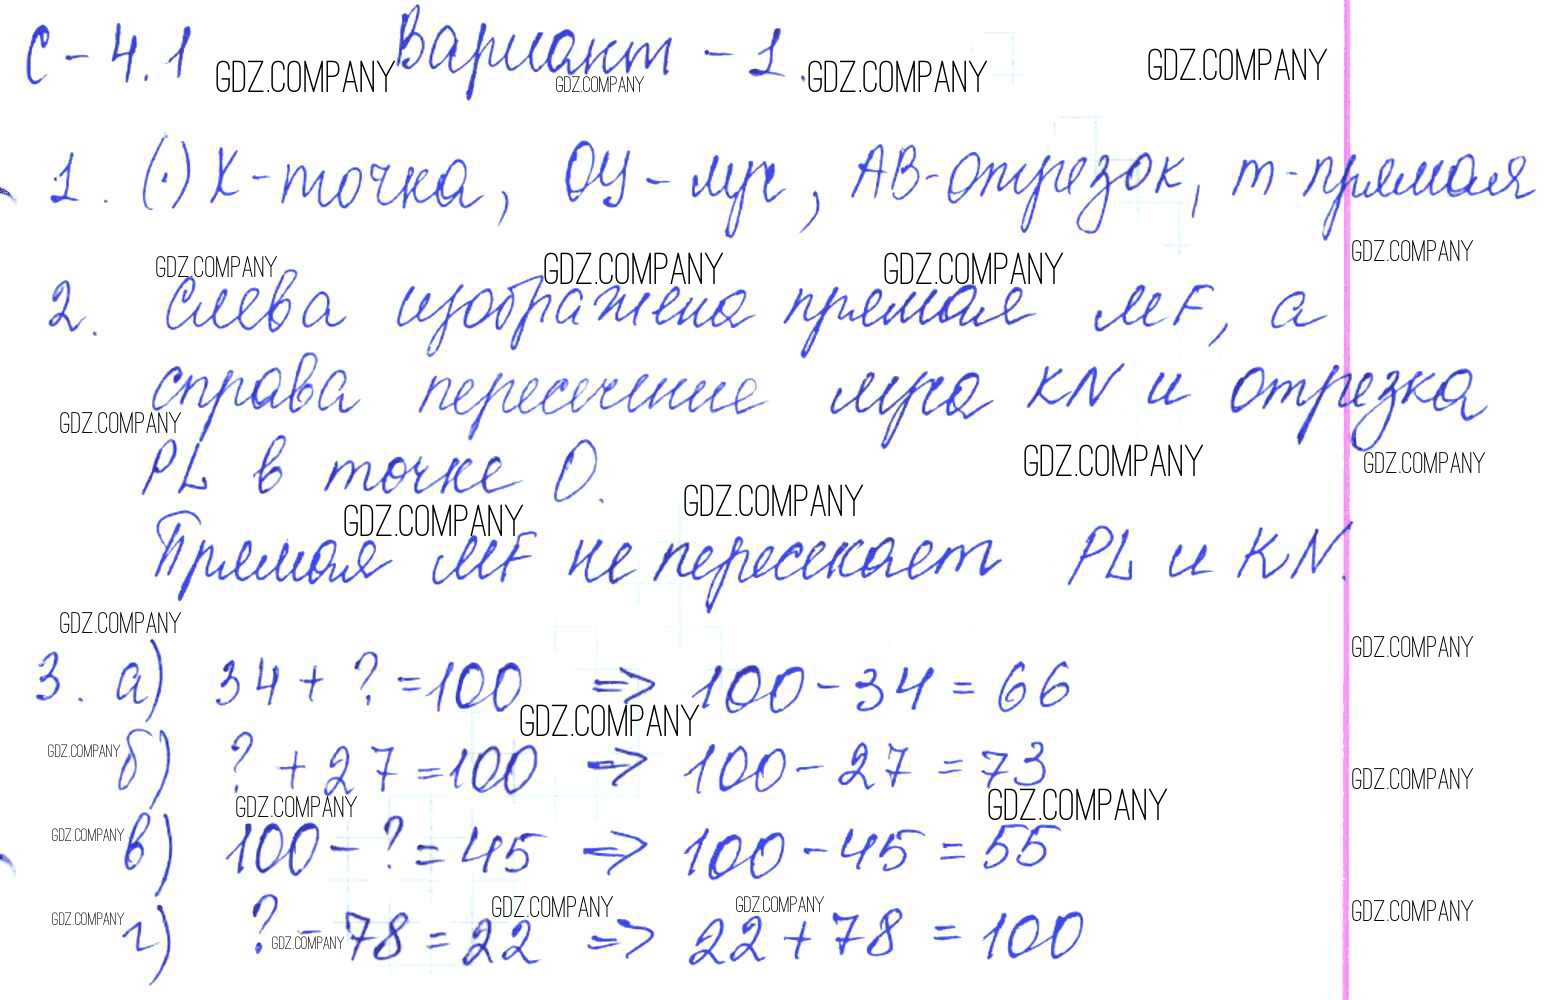 С-4.1 Вариант-1.
GDZ.COMPANY GDZ.COMPANY GDZ.COMPANY GDZ.COMPANY
1. (·) X-точка, ОУ-луч, АВ-отрезок, m-прямая
GDZ.COMPANY GDZ.COMPANY GDZ.COMPANY GDZ.COMPANY
2. Слева изображена прямая MF, а
справа пересечение луча KN и отрезка
GDZ.COMPANY
PL в точке O.
GDZ.COMPANY GDZ.COMPANY
GDZ.COMPANY GDZ.COMPANY
Прямая MF не пересекает PL и KN.
GDZ.COMPANY
3. а) 34 + ? = 100 => 100 - 34 = 66
GDZ.COMPANY GDZ.COMPANY
б) ? + 27 = 100 => 100 - 27 = 73
GDZ.COMPANY GDZ.COMPANY
GDZ.COMPANY GDZ.COMPANY
в) 100 - ? = 45 => 100 - 45 = 55
GDZ.COMPANY
г) ? - 78 = 22 => 22 + 78 = 100
GDZ.COMPANY GDZ.COMPANY GDZ.COMPANY GDZ.COMPANY GDZ.COMPANY